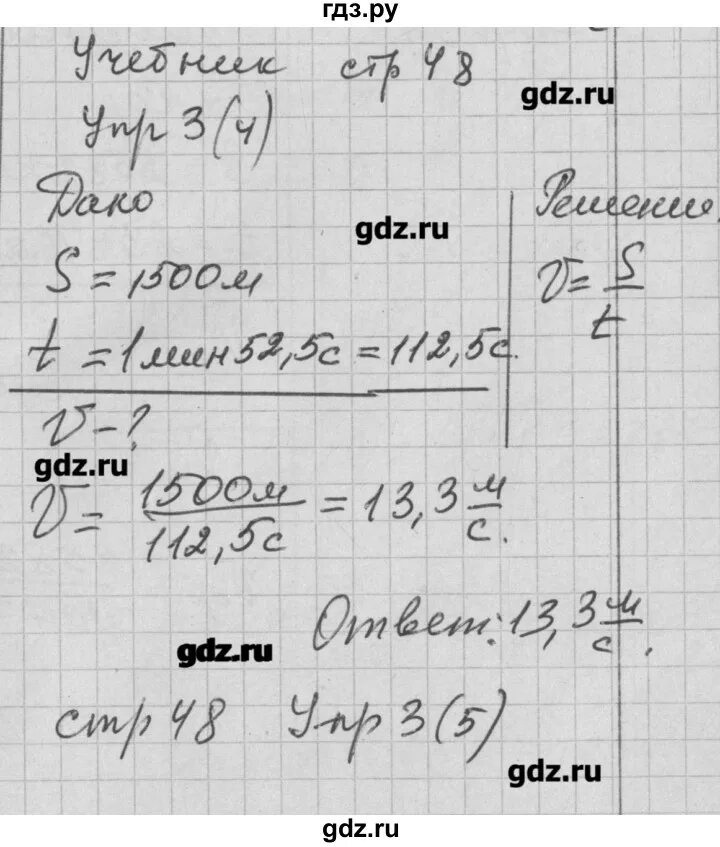 гдз.ру
Учебник стр 48
gdz.ru
Упр 3(4)
Дано
Решение
gdz.ru
S = 1500м
V = S/t
t = 1 мин 52,5с = 112,5с.
V - ?
gdz.ru
V = 1500м/112,5с = 13,3 м/с.
Ответ: 13,3 м/с.
gdz.ru
стр 48 Упр 3(5)
gdz.ru
gdz.ru